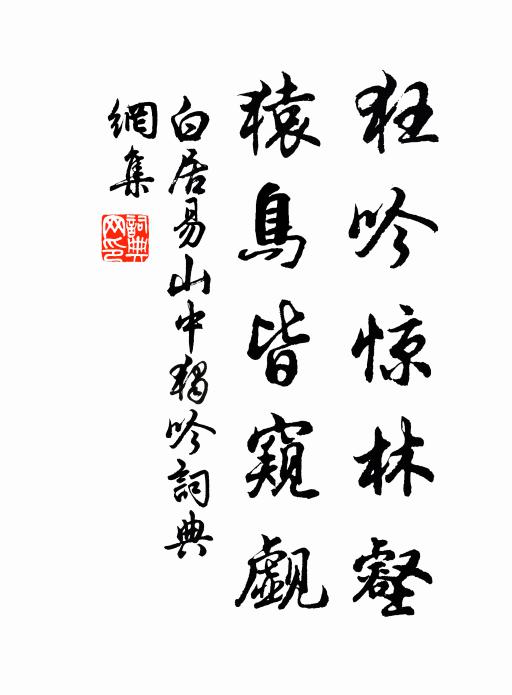 狂吟惊林壑
猿鳥皆窺覷
白居易山中獨吟詞典
網集
詞典
网印